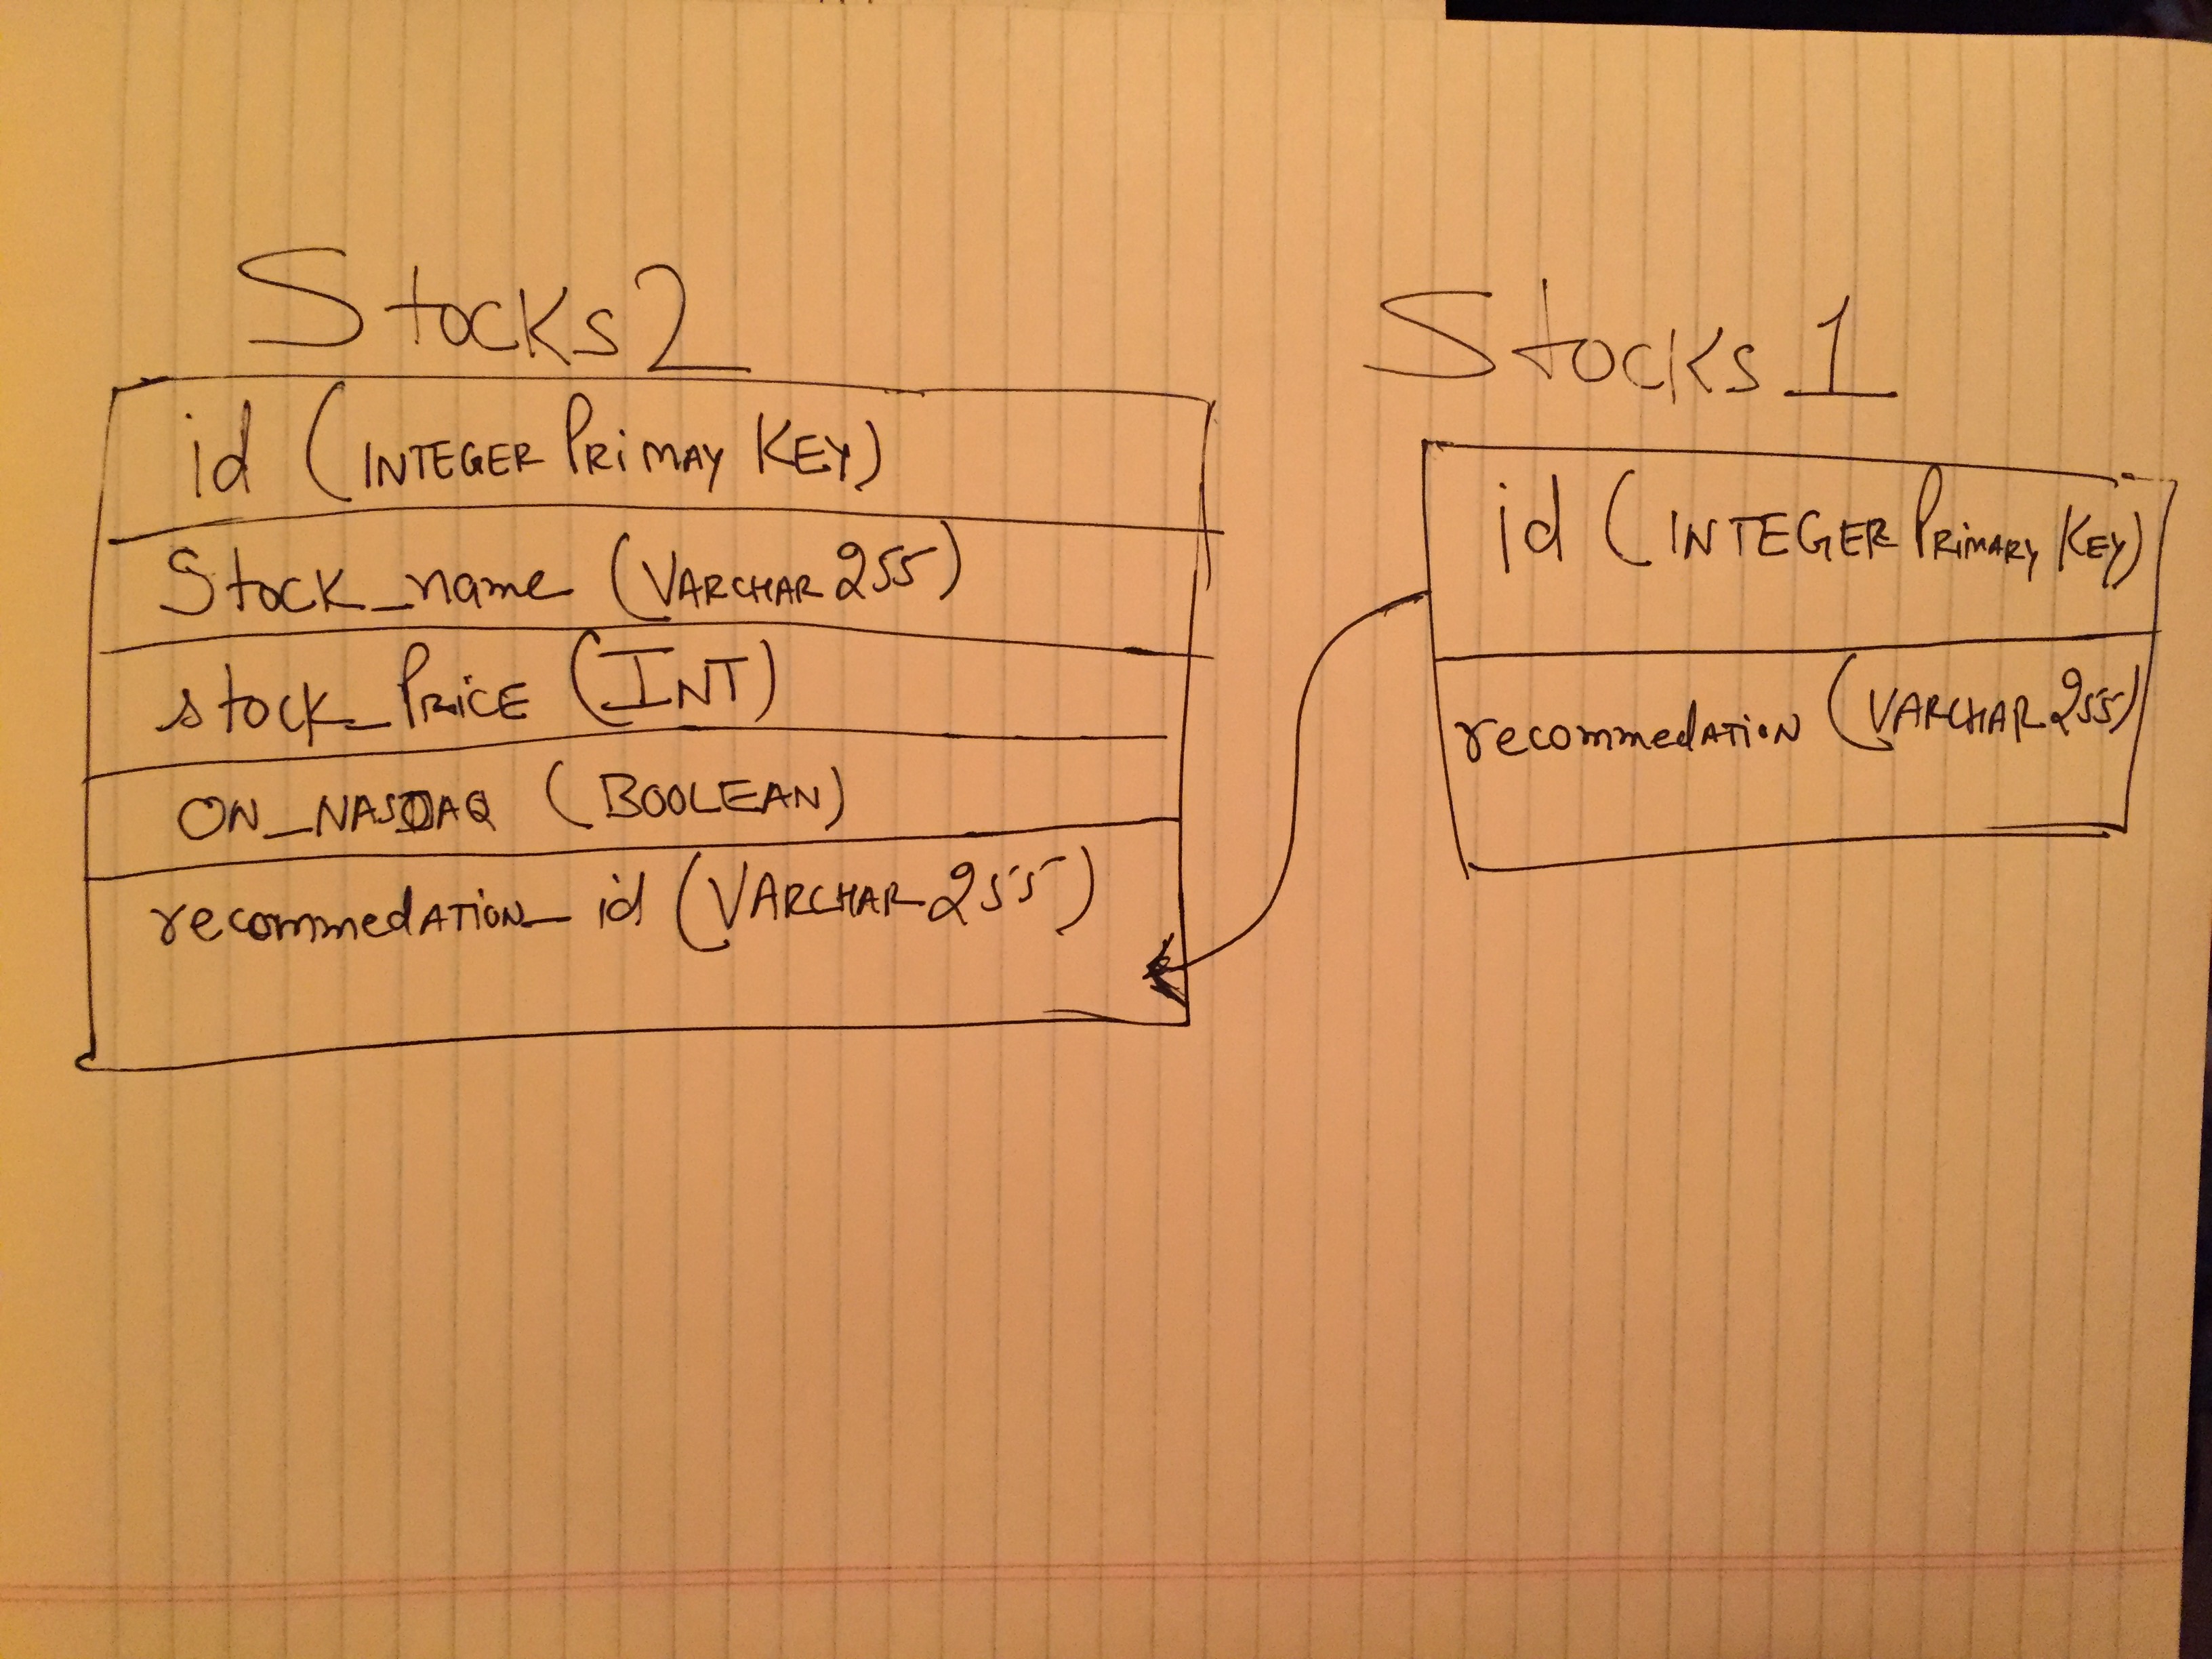 Stocks 2
id (INTEGER PRIMAY KEY)
Stock_name (VARCHAR 255)
stock_PRICE (INT)
ON_NASDAQ (BOOLEAN)
recommedATION_id (VARCHAR 255)
Stocks 1
id (INTEGER PRIMARY KEY)
recommedATION (VARCHAR 255)